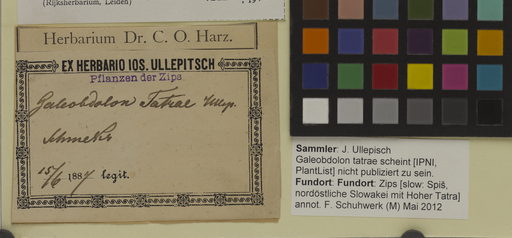 (Rijksherbarium, Leiden)
Herbarium Dr. C. O. Harz.
EX HERBARIO IOS. ULLEPITSCH
Pflanzen der Zips.
Galeobdolon Tatrae Ullep.
Schmeks
15/6 1887 legit.
Sammler: J. Ullepisch
Galeobdolon tatrae scheint [IPNI,
PlantList] nicht publiziert zu sein.
Fundort: Fundort: Zips [slow: Spiš,
nordöstliche Slowakei mit Hoher Tatra]
annot. F. Schuhwerk (M) Mai 2012